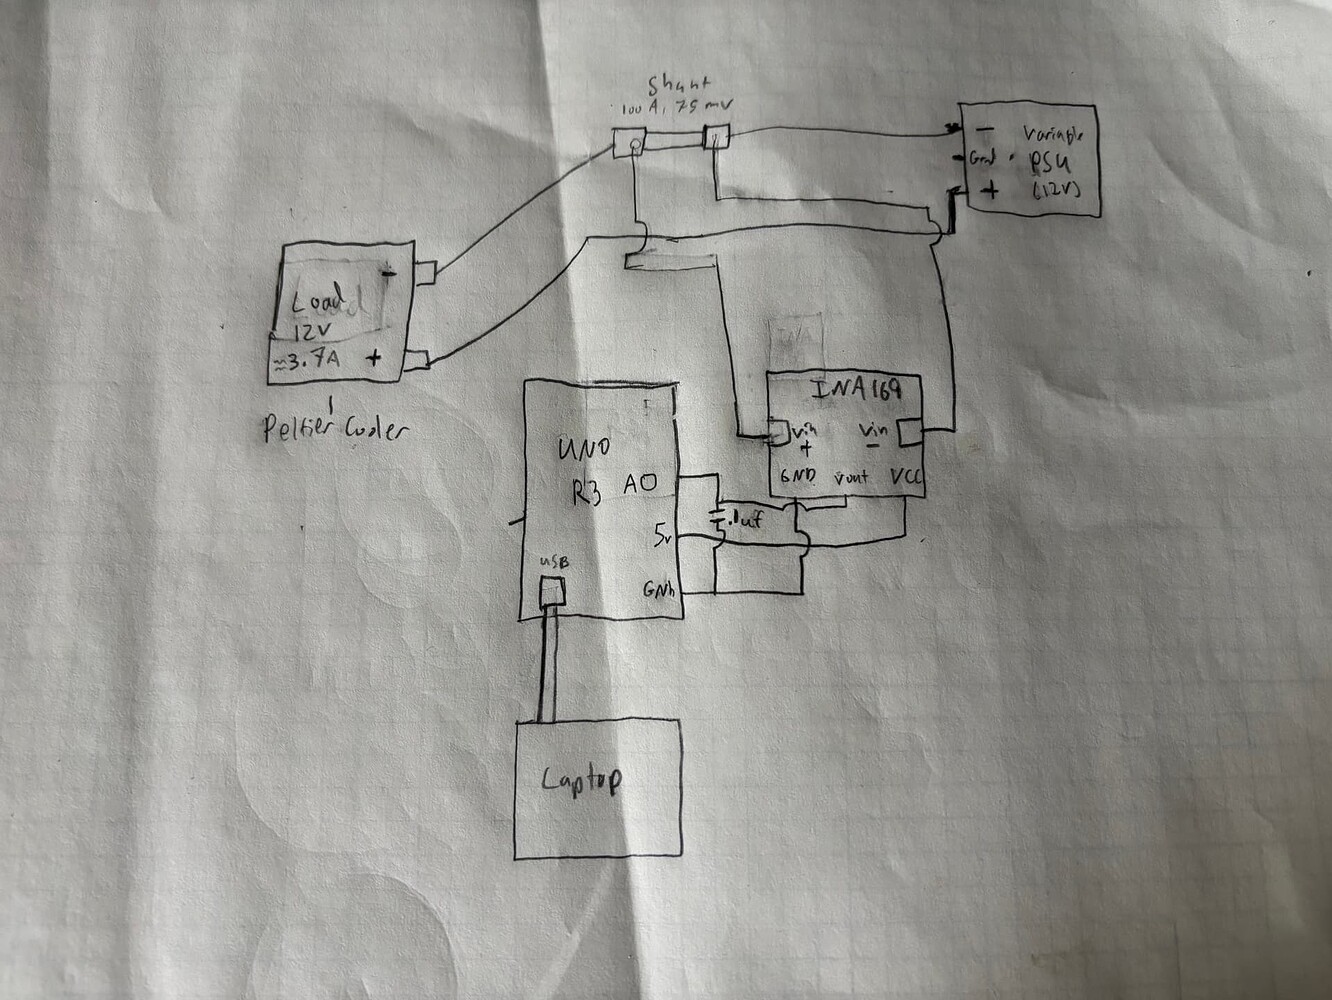 Shunt
100 A, 75 mv
- Variable
Gnd . PSU
+ (12V)
-
Load
12V
≈3.7A +
Peltier Cooler
INA169
Vin Vin
+ -
GND Vout VCC
UNO
R3 A0
.1uf
5v
USB
GNh
Laptop